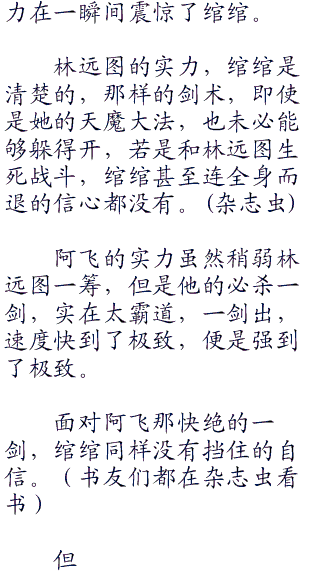 力在一瞬间震惊了绾绾。
林远图的实力，绾绾是
清楚的，那样的剑术，即使
是她的天魔大法，也未必能
够躲得开，若是和林远图生
死战斗，绾绾甚至连全身而
退的信心都没有。(杂志虫)
阿飞的实力虽然稍弱林
远图一筹，但是他的必杀一
剑，实在太霸道，一剑出，
速度快到了极致，便是强到
了极致。
面对阿飞那快绝的一
剑，绾绾同样没有挡住的自
信。（书友们都在杂志虫看
书）
但